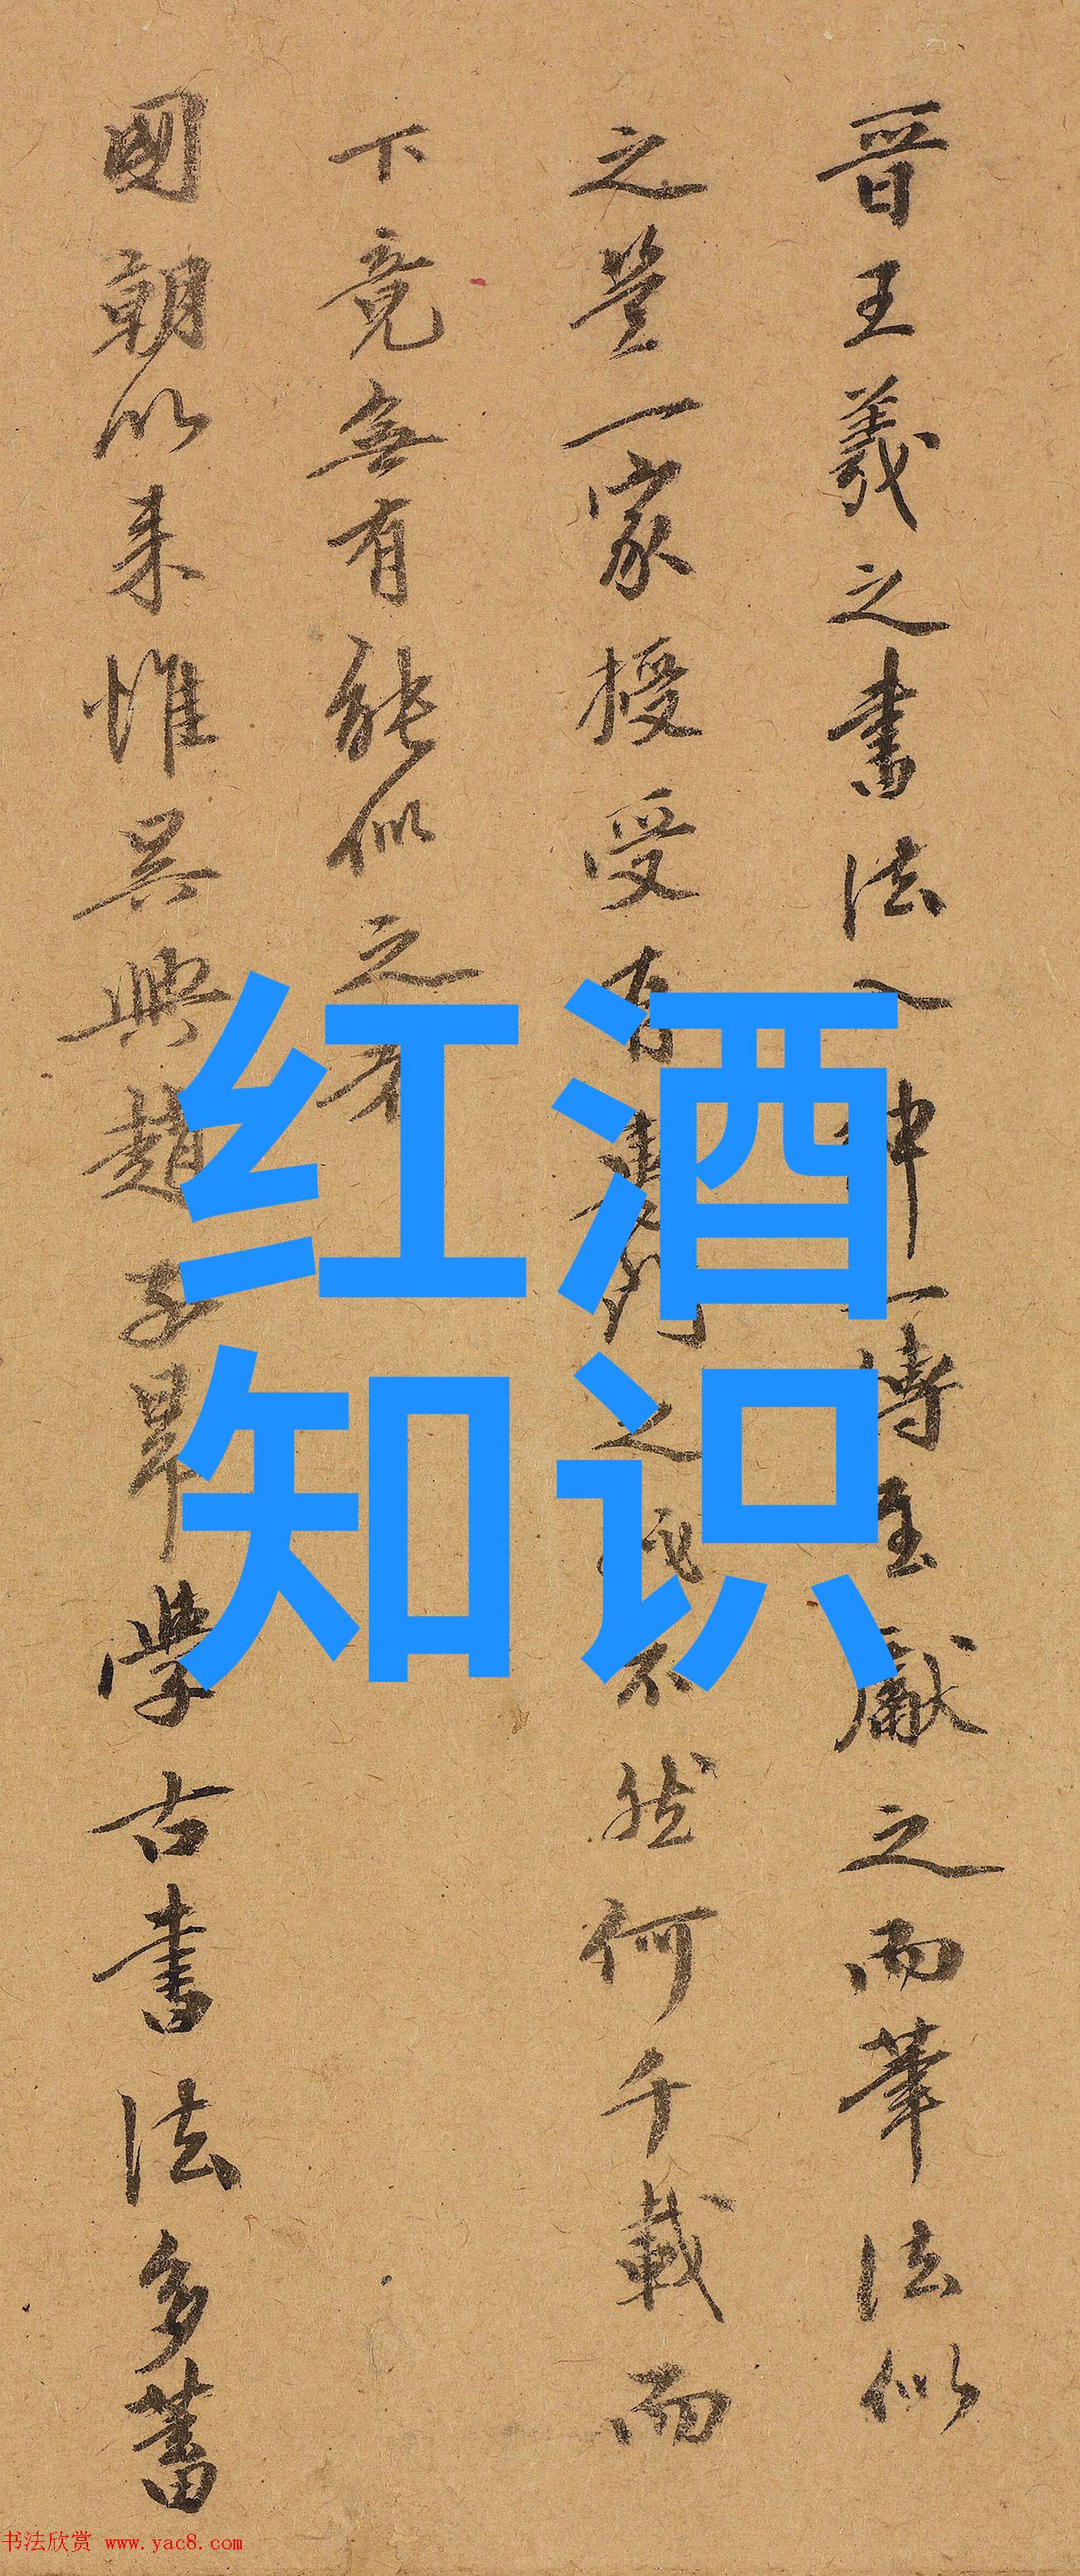 晉王羲之書法入神一傳至獻之而筆法似
之豈一家授受有之不然何千載而
下竟無有能似之者
國朝以来惟吳興趙子昂學古書法多蓄
红酒
知识
书法欣赏 www.yac8.com